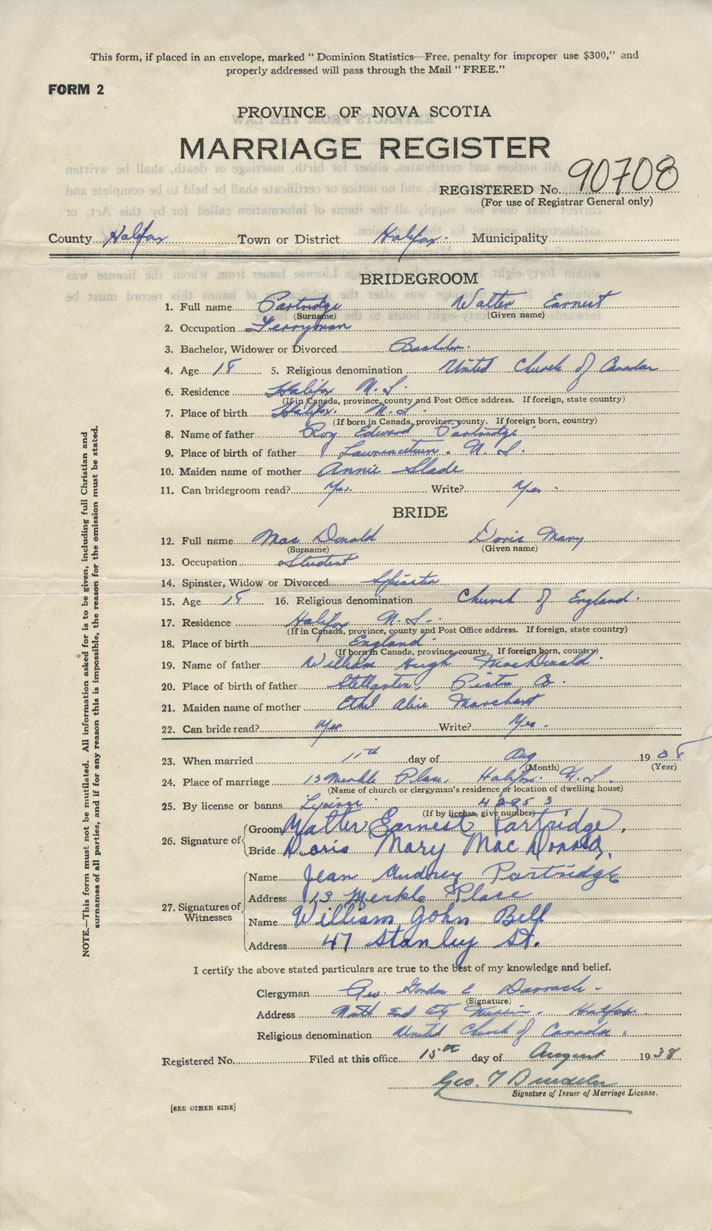 This form, if placed in an envelope, marked "Dominion Statistics—Free, penalty for improper use $300," and
properly addressed will pass through the Mail "FREE."
FORM 2
PROVINCE OF NOVA SCOTIA
MARRIAGE REGISTER
REGISTERED No. 90708
(For use of Registrar General only)
County Halifax Town or District Halifax. Municipality
BRIDEGROOM
1. Full name Partridge Walter Earnest
(Surname) (Given name)
2. Occupation Ferryman
3. Bachelor, Widower or Divorced Bachelor.
4. Age 18 5. Religious denomination United Church of Canada
6. Residence Halifax N.S.
(If in Canada, province, county and Post Office address. If foreign, state country)
7. Place of birth Halifax. N.S.
(If born in Canada, province, county. If foreign born, country)
8. Name of father Roy Edward Partridge.
9. Place of birth of father Lawrencetown. N.S.
10. Maiden name of mother Annie Slade
11. Can bridegroom read? Yes. Write? Yes.
BRIDE
12. Full name MacDonald Doris Mary
(Surname) (Given name)
13. Occupation Student
14. Spinster, Widow or Divorced Spinster
15. Age 18 16. Religious denomination Church of England.
17. Residence Halifax N.S.
(If in Canada, province, county and Post Office address. If foreign, state country)
18. Place of birth England
(If born in Canada, province, county. If foreign born, country)
19. Name of father William Hugh MacDonald.
20. Place of birth of father Stellarton, Pictou
21. Maiden name of mother Ethel Marchant
22. Can bride read? Yes Write? Yes.
23. When married 11th day of Aug 1938
(Month) (Year)
24. Place of marriage 13 Merkle Place, Halifax. N.S.
(Name of church or clergyman's residence or location of dwelling house)
25. By license or banns 42953
(If by license, give number)
26. Signature of Groom Walter Earnest Partridge.
Bride Doris Mary MacDonald,
27. Signatures of Witnesses
Name Jean Audrey Partridge
Address 13 Merkle Place
Name William John Bell
Address 47 Stanley St.
I certify the above stated particulars are true to the best of my knowledge and belief.
Clergyman Rev. Gordon
(Signature)
Address City Mission. Halifax
Religious denomination United Church of Canada.
Registered No. Filed at this office 15th day of August 1938
Geo.
Signature of Issuer of Marriage License.
[SEE OTHER SIDE]
NOTE.—This form must not be mutilated. All information asked for is to be given, including full Christian and
surnames of all parties, and if for any reason this is impossible, the reason for the omission must be stated.